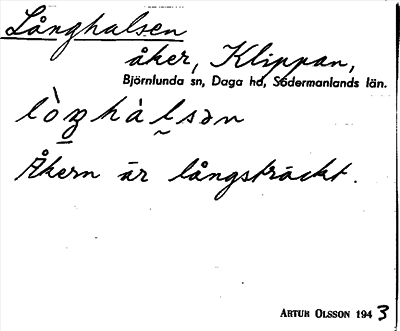 Långhalsen
åker, Klippan,
Björnlunda sn, Daga hd, Södermanlands län.
lòŋhàlsən
Åkern är långsträckt.
ARTUR OLSSON 1943